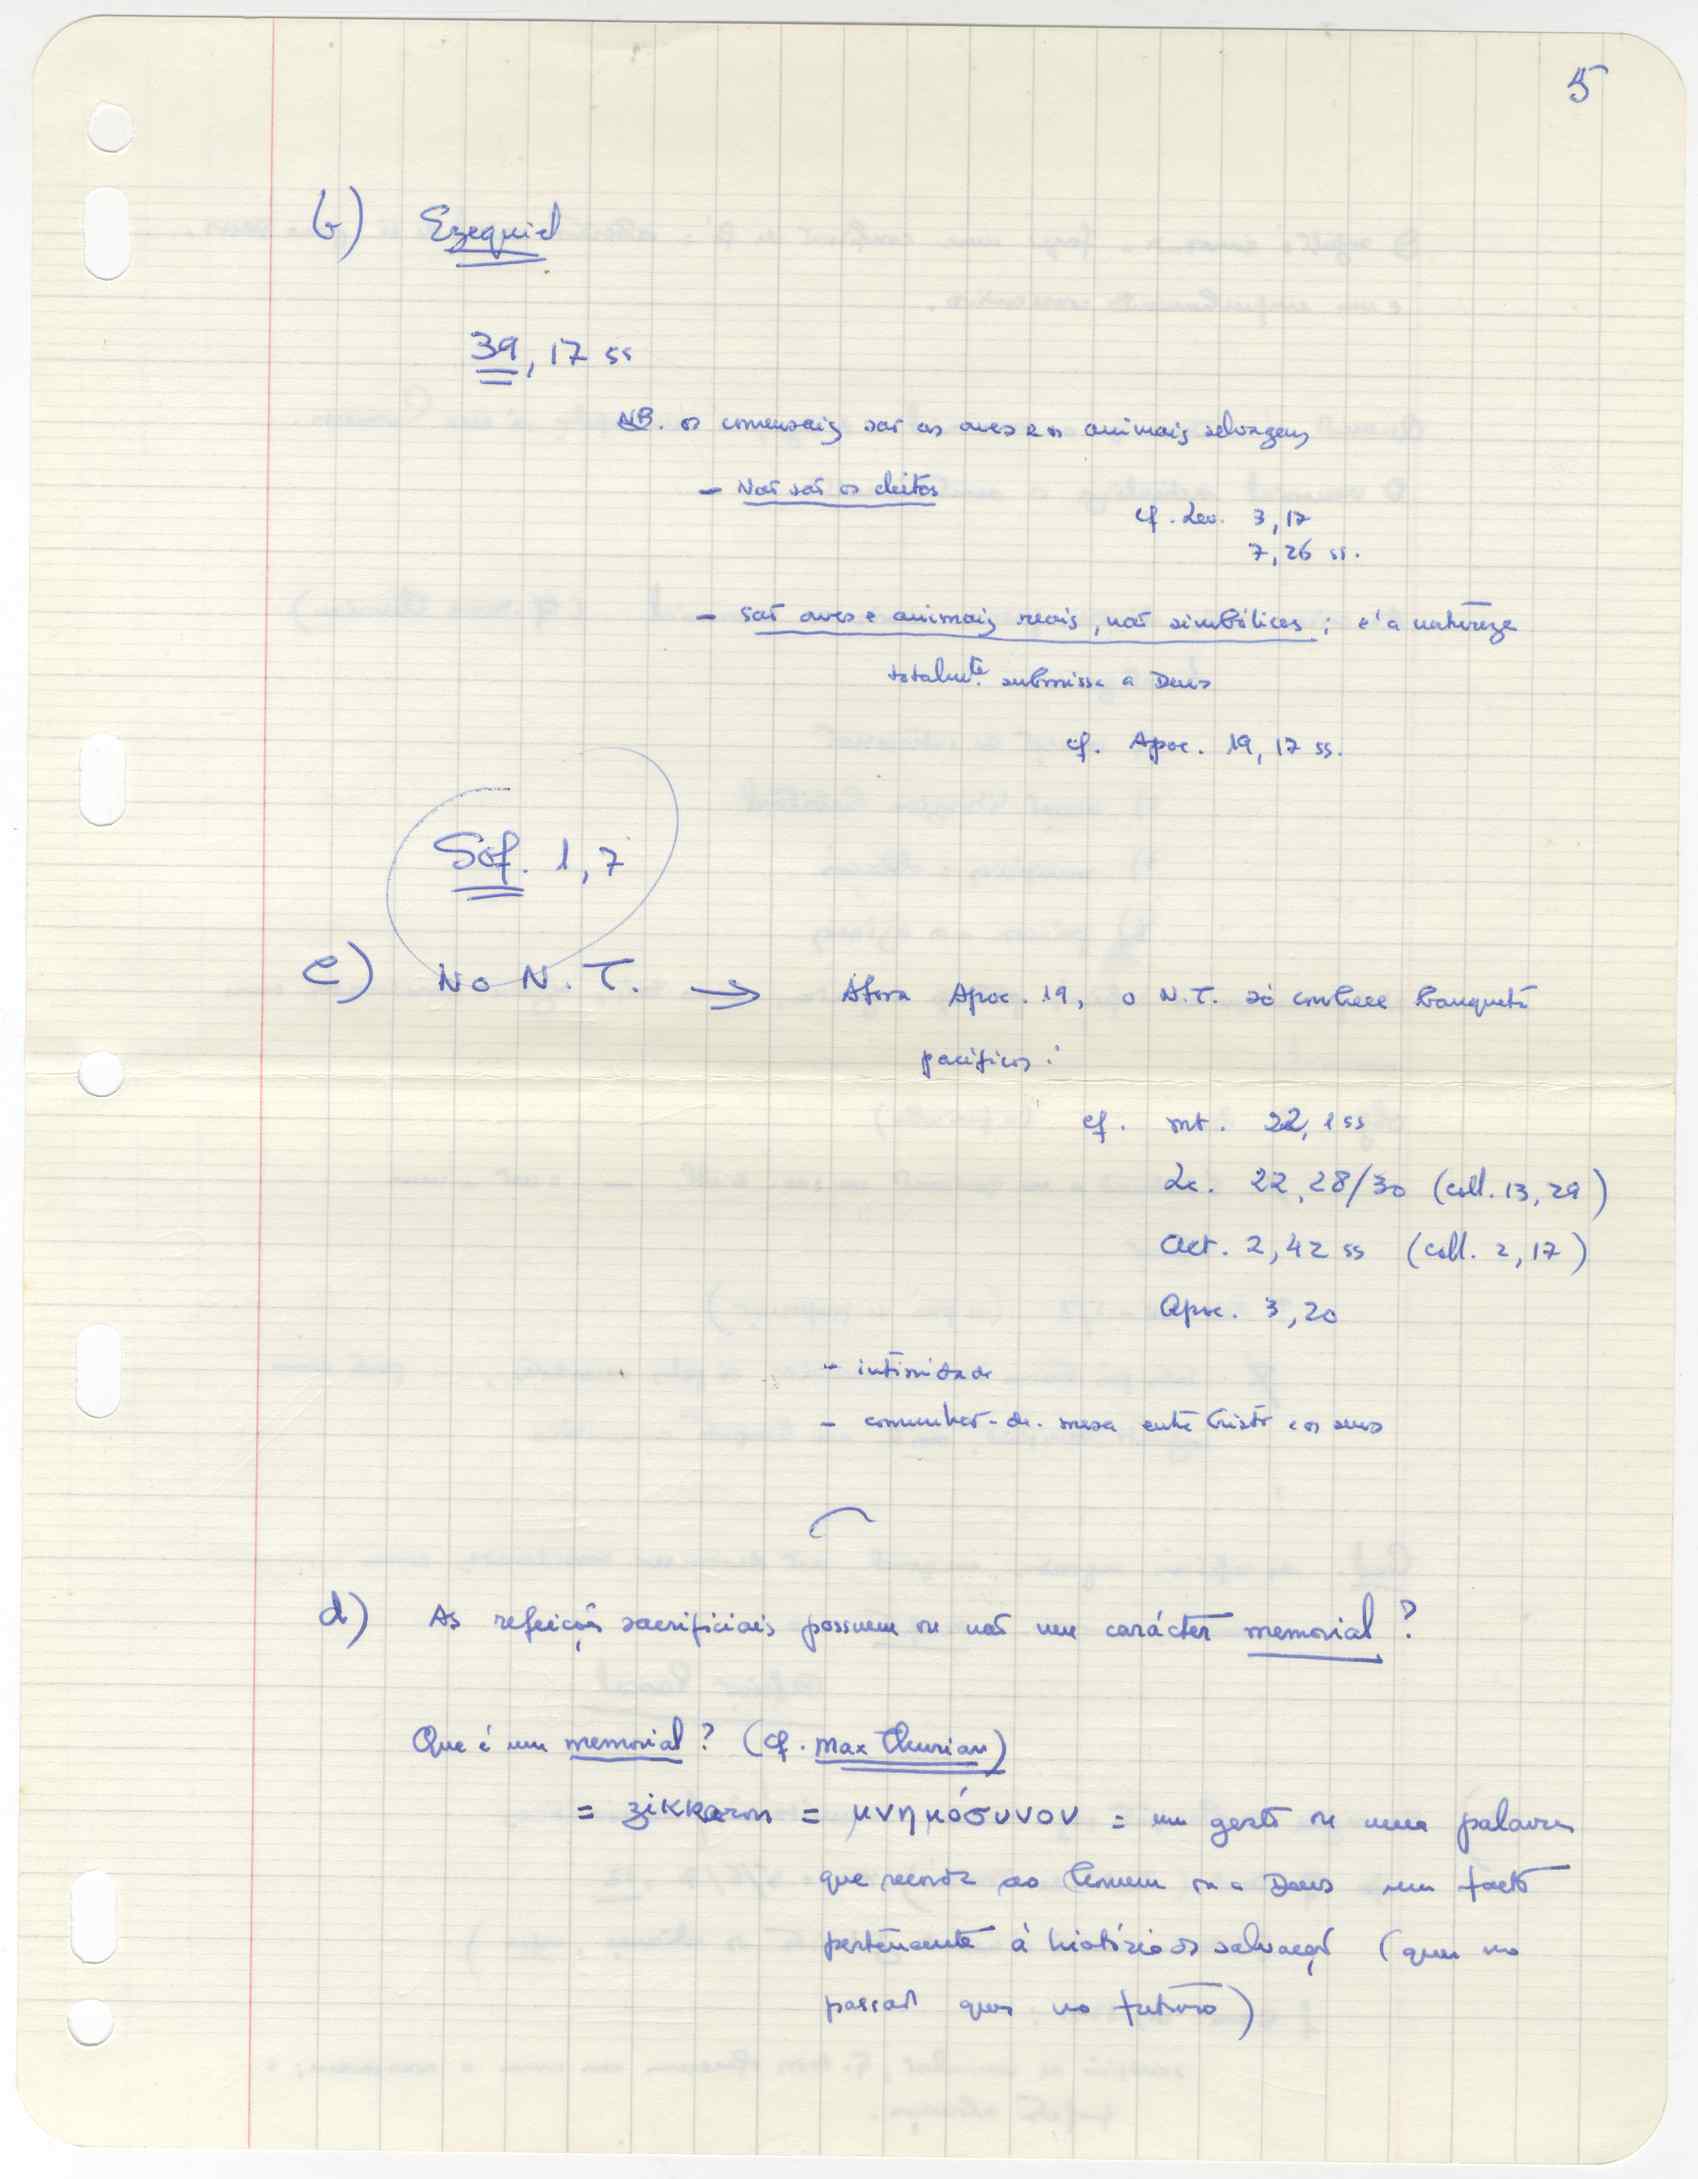 5
b) Ezequiel
39, 17 ss
NB. os comensais são as aves e os animais selvagens
- Não são os eleitos
cf. Lev. 3, 17
7, 26 ss.
- São aves e animais reais, não simbólicos; é a natureza
totalmte. submissa a Deus
cf. Apoc. 19, 17 ss.
Sof. 1, 7
c) No N. T. → Àfora Apoc. 19, o N.T. só conhece banquetes
pacíficos:
cf. Mt. 22, 1 ss
Lc. 22, 28/30 (coll. 13, 29)
Act. 2, 42 ss (coll. 2, 17)
Apoc. 3, 20
- intimidade
- comunhão-de-mesa entre Cristo e os seus
d) As refeições sacrificiais possuem ou não um carácter memorial?
Que é um memorial? (cf. Max Thurian)
= zikkaron = μνημόσυνον = um gesto ou uma palavra
que recorda ao homem ou a Deus um facto
pertencente à história da salvação (quer no
passado quer no futuro)